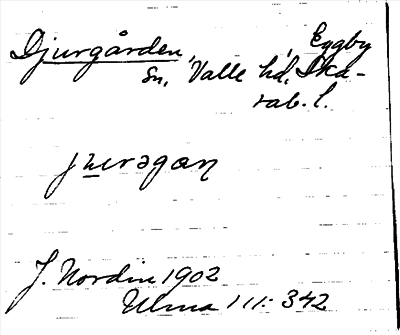 Djurgården, Eggby
sn, Valle hd, Ska-
rab. l.
J. Nordin 1902
Ulma 111: 342